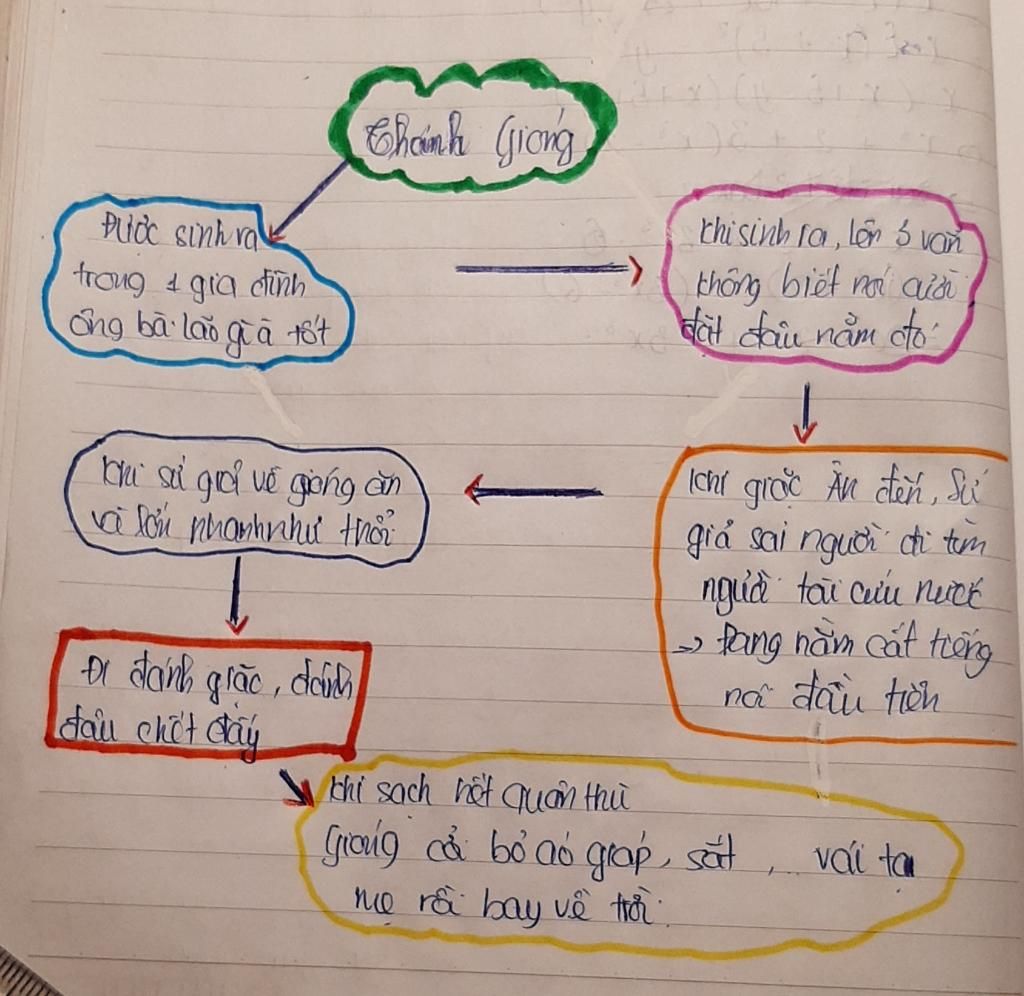 Thánh Gióng
Được sinh ra
trong 1 gia đình
ông bà lão già tốt
Khi sinh ra, lên 3 vẫn
không biết nói cười
đặt đâu nằm đó
Khi giặc Ân đến, Sứ
giả sai người đi tìm
người tài cứu nước
→ Đang nằm cất tiếng
nói đầu tiên
Khi sứ giả về gióng ăn
và lớn nhanh như thổi
Đi đánh giặc, đánh
đâu chết đấy
Khi sạch hết quân thù
Gióng cởi bỏ áo giáp, sắt, vái tạ
mẹ rồi bay về trời.